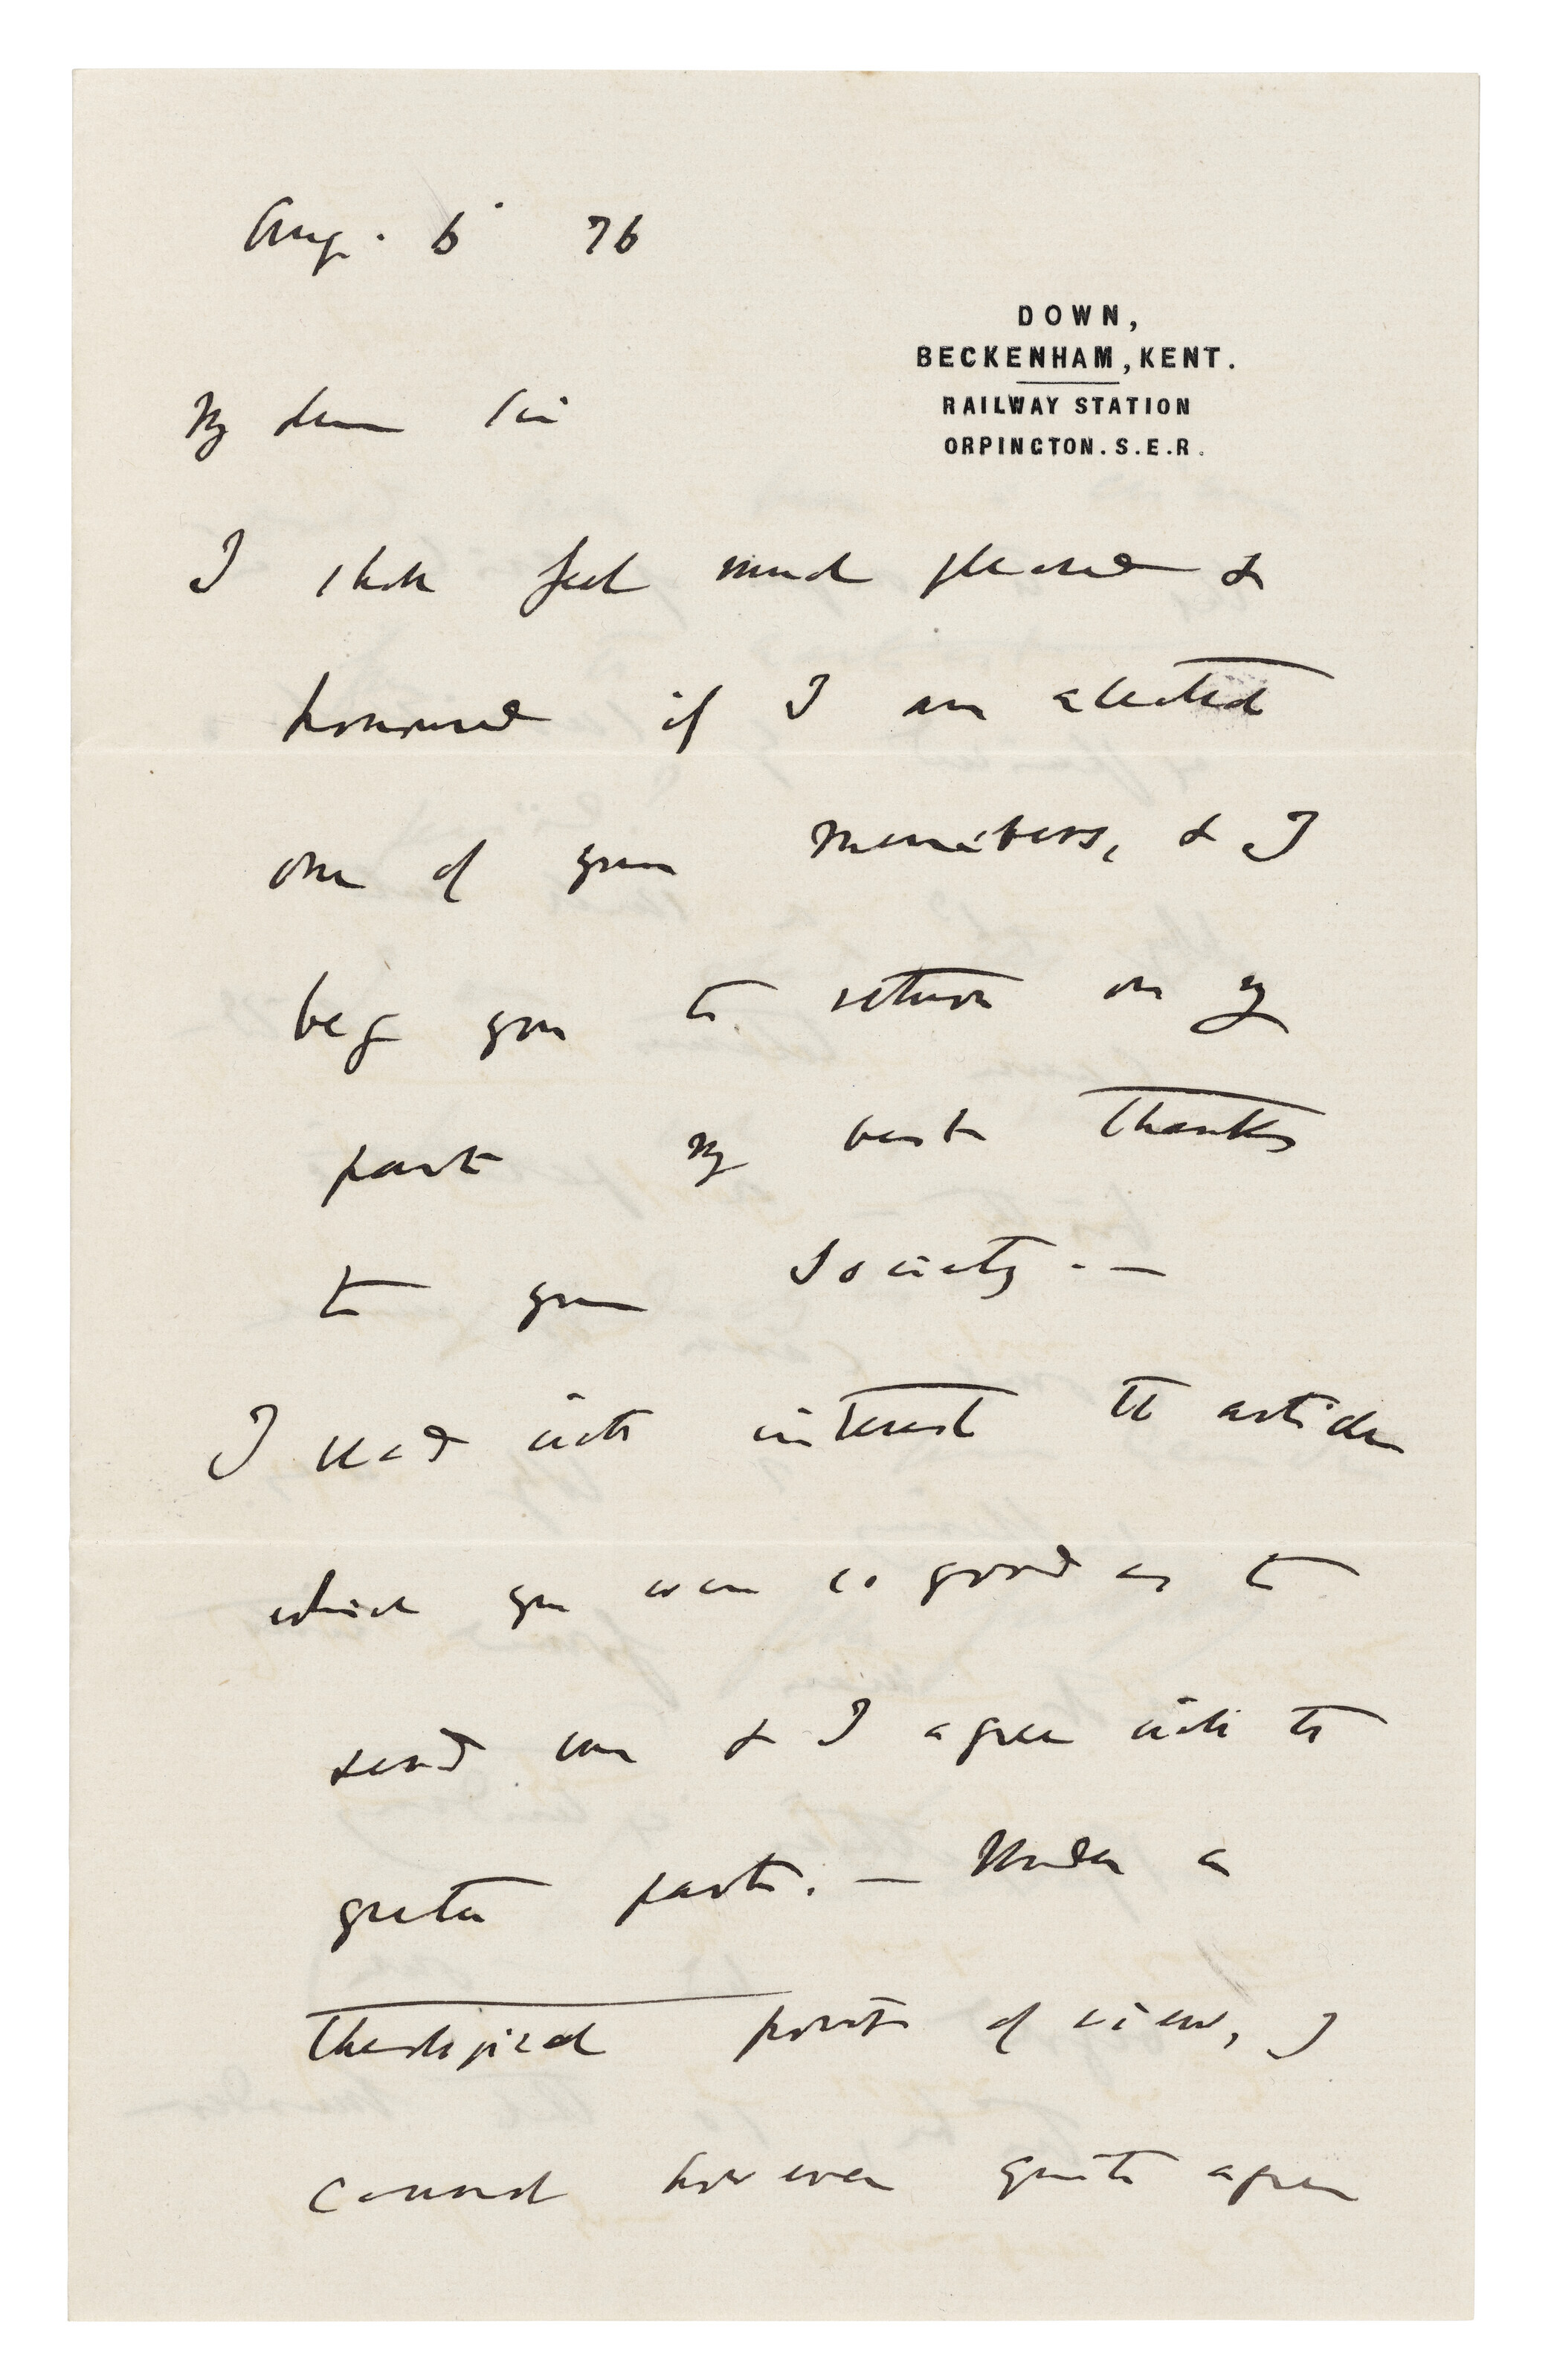 Aug. 6' 76
DOWN,
BECKENHAM, KENT.
RAILWAY STATION
ORPINGTON. S.E.R.
My dear Sir
I shall feel much pleased &
honoured if I am elected
one of your members, & I
beg you to return on my
part my best thanks
to your Society.—
I read with interest the article
which you were so good as to
send me & I agree with the
greater part. — Under a
theological point of view, I
cannot however quite agree